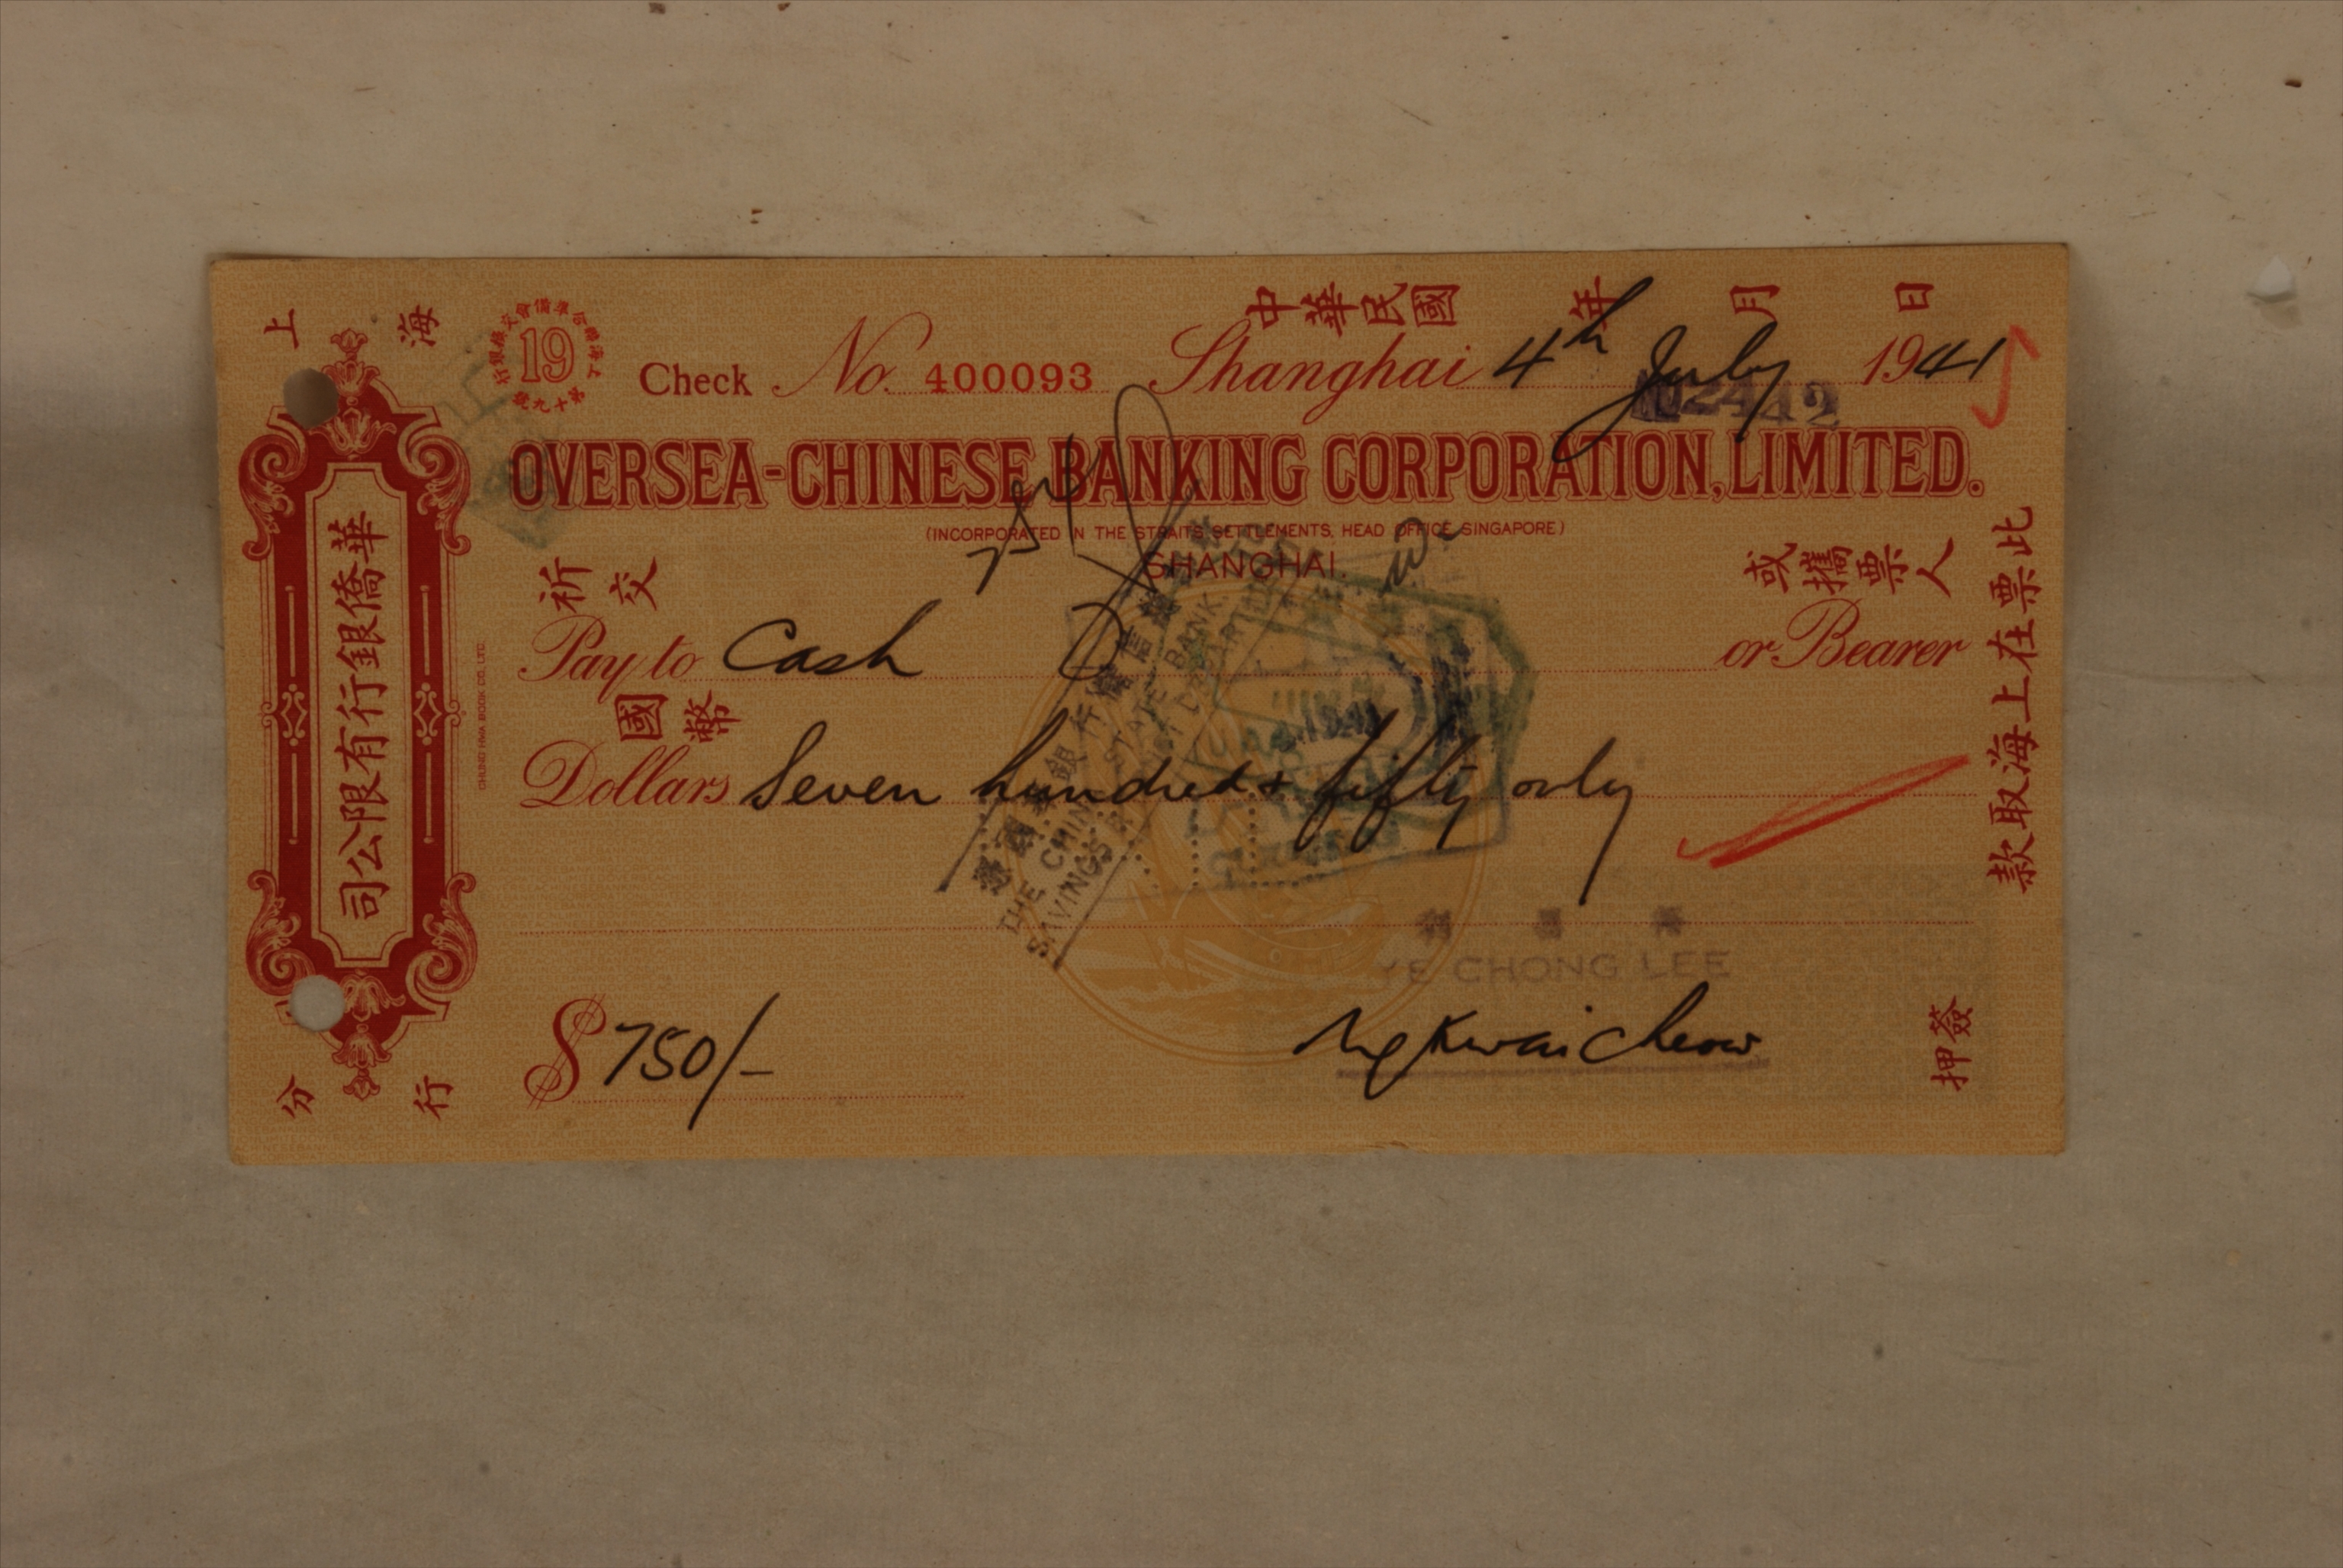 上海
19
中華民國 年 月 日
Check No. 400093 Shanghai 4th July 1941
2442
OVERSEA-CHINESE BANKING CORPORATION, LIMITED.
(INCORPORATED IN THE STRAITS SETTLEMENTS, HEAD OFFICE SINGAPORE)
SHANGHAI.
祈交
或攜票人
Pay to Cash or Bearer
國幣
Dollars Seven hundred & fifty only
此票在上海取款
華僑銀行有限公司
CHUNG HWA BOOK CO. LTD.
THE CHINA STATE BANK
SAVINGS
CHONG LEE
$ 750/-
Ng Kwai Cheow
簽押
分行